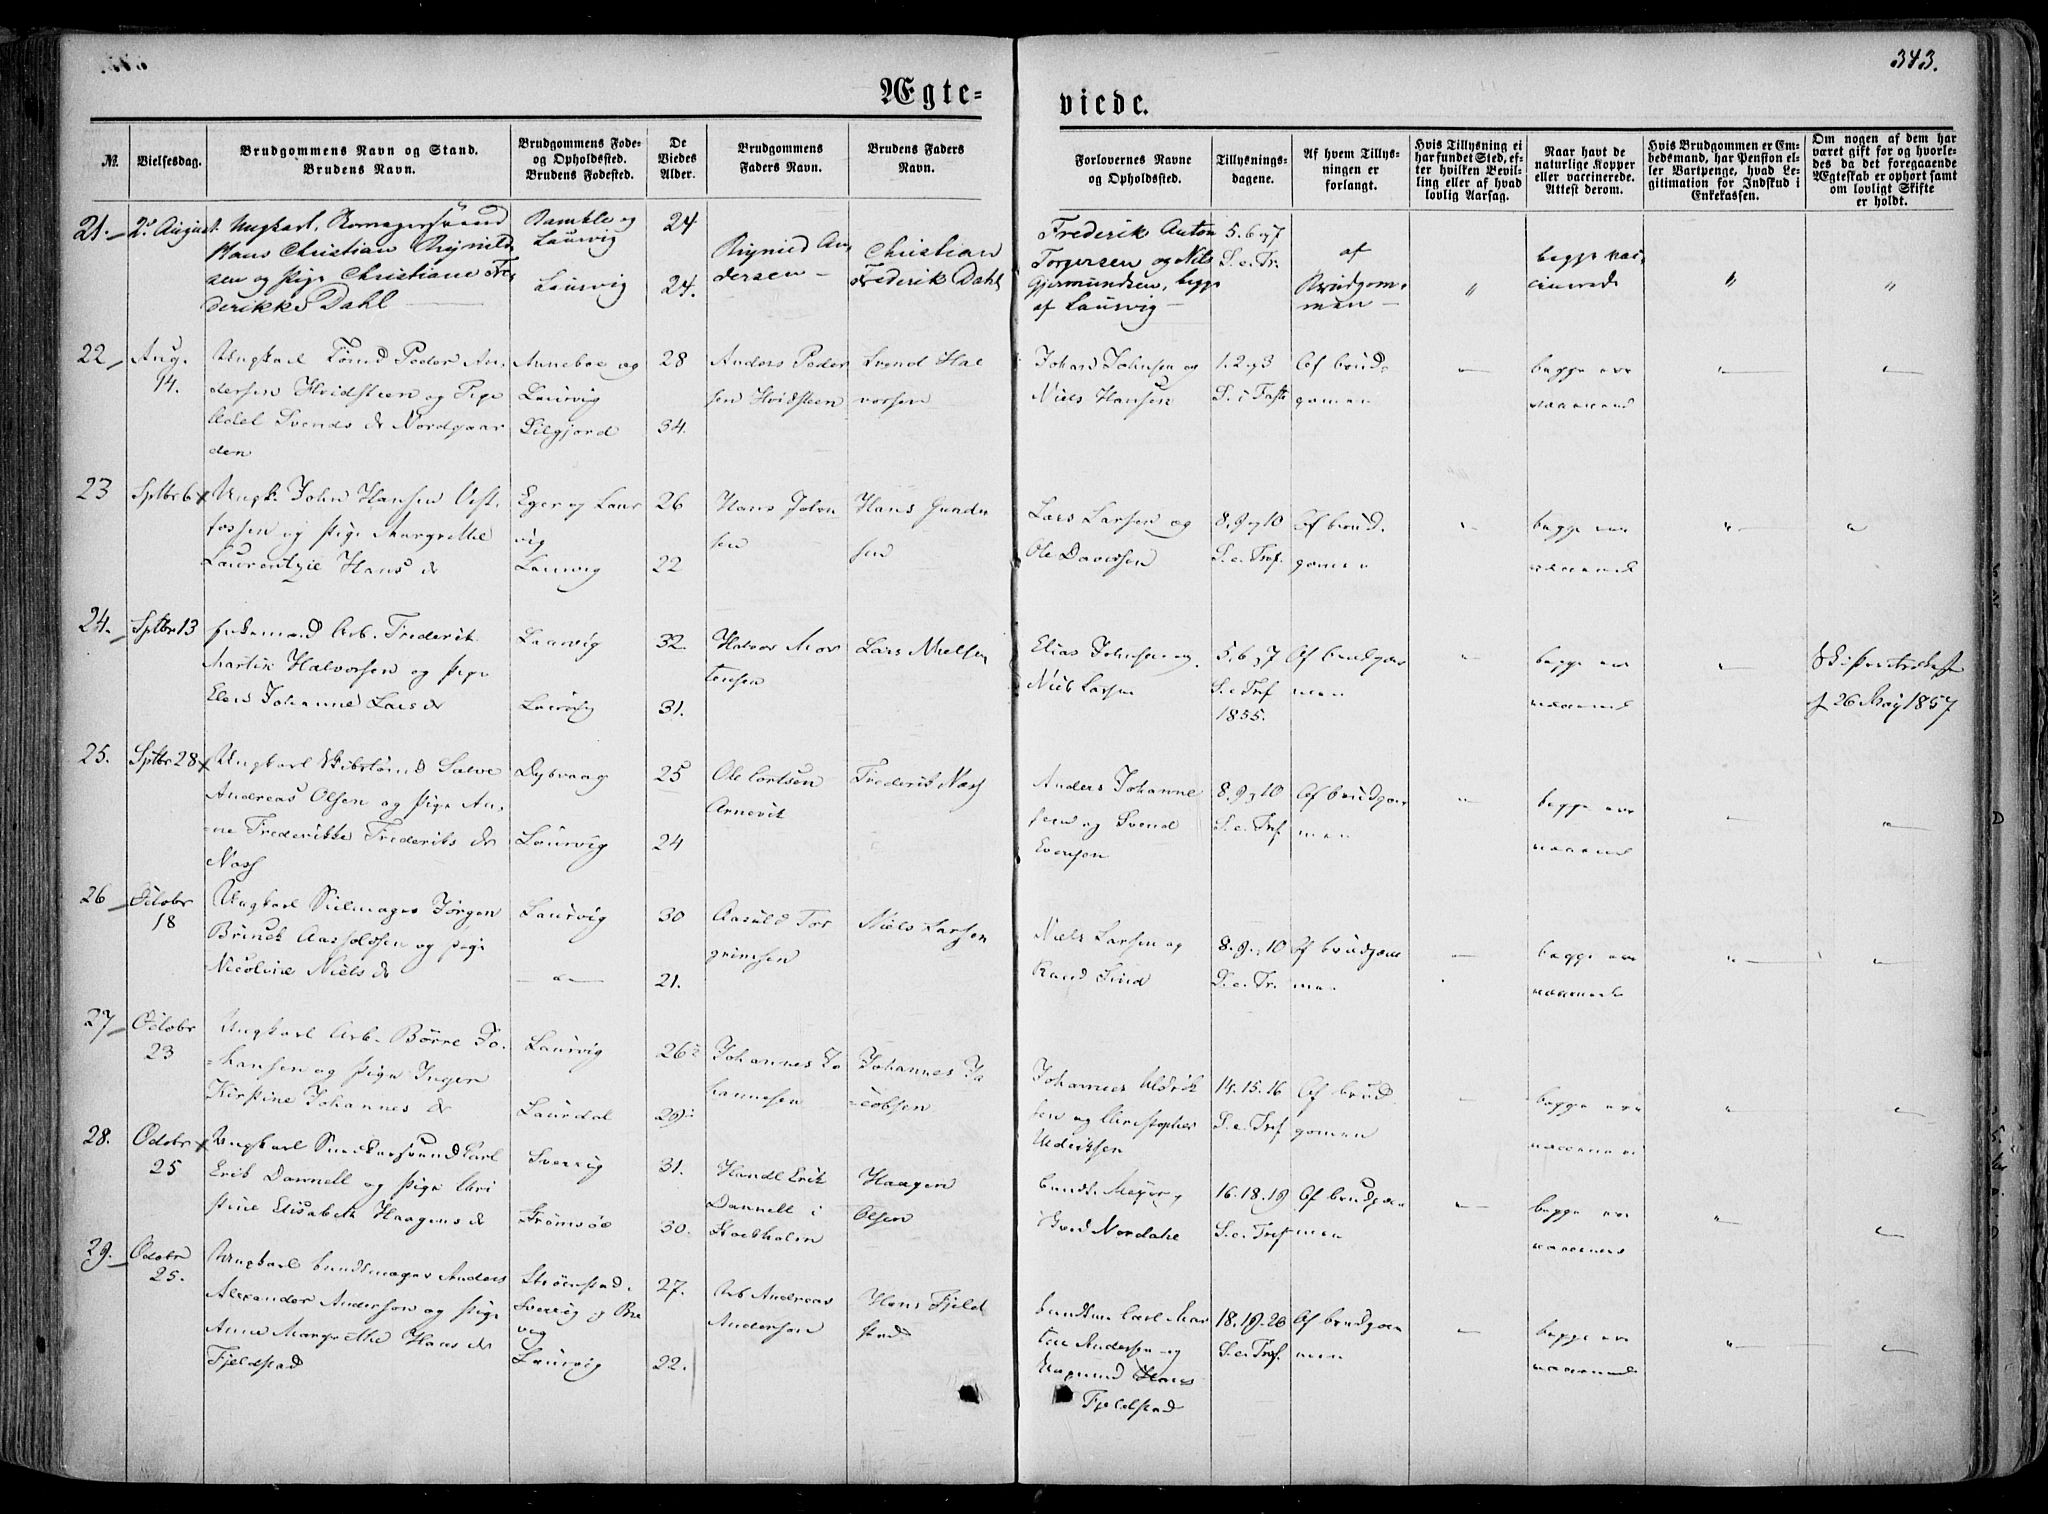 343.
Ægte-
viede.
№.
Vielsesdag.
Brudgommens Navn og Stand.
Brudens Navn.
Brudgommens Føde-
og Opholdssted.
Brudens Fødested.
De
Viedes
Alder.
Brudgommens
Faders Navn.
Brudens Faders
Navn.
Forlovernes Navne
og Opholdssted.
Tillysnings-
dagene.
Af hvem Tillys-
ningen er
forlangt.
Hvis Tillysning ei
har fundet Sted, ef-
ter hvilken Bevil-
ling eller af hvad
lovlig Aarsag.
Naar havt de
naturlige Kopper
eller vaccinerede.
Attest derom.
Hvis Brudgommen er Em-
bedsmand, har Pension el-
ler Vartpenge, hvad Le-
gitimation for Indskud i
Enkekassen.
Om nogen af dem har
været gift før og hvorle-
des da det foregaaende
Ægteskab er ophørt samt
om lovligt Skifte
er holdt.
21. 2. August Ungkarl,
Hans Christian
sen og Pige Christiane Fre
derikke Dahl
Bamble og
Laurvig
Laurvig
24
24.
An
dersen
Christian
Frederik Dahl
Frederik Anton
Torgersen og Nils
Gjermundsen, begge
af Laurvig
5. 6 og 7
S. e. Tr.
af
Brudgom-
men
begge vac-
cinerede
22 Aug.
14.
Ungkarl Tømd Peder An
dersen Hvidsteen og Pige
Adel Svends d Nordgaar
den
og
Laurvig
28
34.
Anders Peder
sen Hvidsteen
Svend Hal
vorsen
Johan Johnsen og
Niels Hansen
1. 2. og 3
S. i Faste
Af brud-
gomen
begge ere
23 Sptbr 6
Ungk. John Hansen Vest
fossen og Pige Margrethe
Laurentzie Hans d
Eger og Laur
vig
Laurvig
26
22
Hans John
sen
Hans Gunder
sen
Lars Larsen og
Ole
8. 9 og 10
S. e. Tref.
Af brud-
gomen
begge ere
24. Sptbr 13
Enkemand Arb. Frederik
Martin Halvorsen og Pige
Elen Johanne Lars d
Laurvig
Laurvig
32.
31.
Halvor Mor
tensen
Lars Nielsen
Elias Johnsen og
Niels Larsen
5. 6 og 7
S. e. Tref
1855.
Af brudgom
men
begge ere
26 May 1857
25. Sptbr 28
Ungkarl Salve
Andreas Olsen og Pige An-
ne Frederikke Frederiks d
Næss
Dybvaag
Laurvig
25
24
Ole
Arnevik
Frederik Næss
Anders Johanne
sen og Svend
Evensen
8. 9 og 10
S. e. Tref
Af brudgom
men
begge ere
26 Octobr
18
Ungkarl Seilmager Jørgen
og Pige
Niels d
Laurvig
30
21.
Tor
grimsen
Niels Larsen
Niels Larsen og
8. 9. og 10
S. e. Tr.
Af brudgom
men
begge ere
27 Octobr
23
Ungkarl Arb. Børre Jo-
hansen og Pige Inger
Kirstine Johannes d
Laurvig
Laurdal
26
29
Johannes Jo
hannesen
Johannes Ja
cobsen
Johannes Uldrik
sen og Christopher
Uldriksen
14. 15. 16
S. e. Tref
Af brud
gomen
begge ere
28. Octobr
25
Ungkarl Carl
Erik Dannell og Pige Chri
stine Elisabeth Haagens d
Sverrig
Tromsøe
31.
30.
Handl Erik
Dannell i
Stockholm
Haagen
Olsen
Meyer og
Nordahl
16. 18. 19
S. e. Tref
Af brudgom
men
begge ere
29. Octobr
25.
Ungkarl Buntmager Anders
Alexander Andersen og Pige
Anne Margrethe Hans d
Fjeldstad
Strømstad,
Sverrig og Bre
vig
Laurvig
27.
22.
Arb Andreas
Andersen
Hans Fjeld
stad
Carl Mar
tin Andersen og
Hans
Fjeldstad
18. 19. 20
S. e. Tref.
Af brudgom
men
begge ere